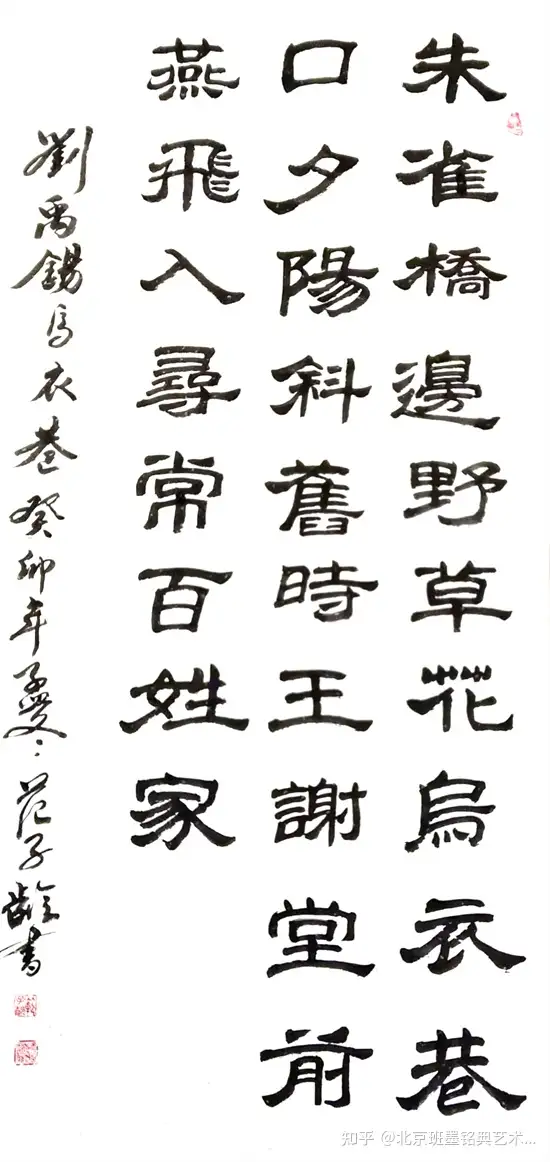 朱雀橋邊野草花烏衣巷
口夕陽斜舊時王謝堂前
燕飛入尋常百姓家
劉禹錫烏衣巷癸卯年孟夏范子齡書
知乎 @北京班墨铭典艺术...